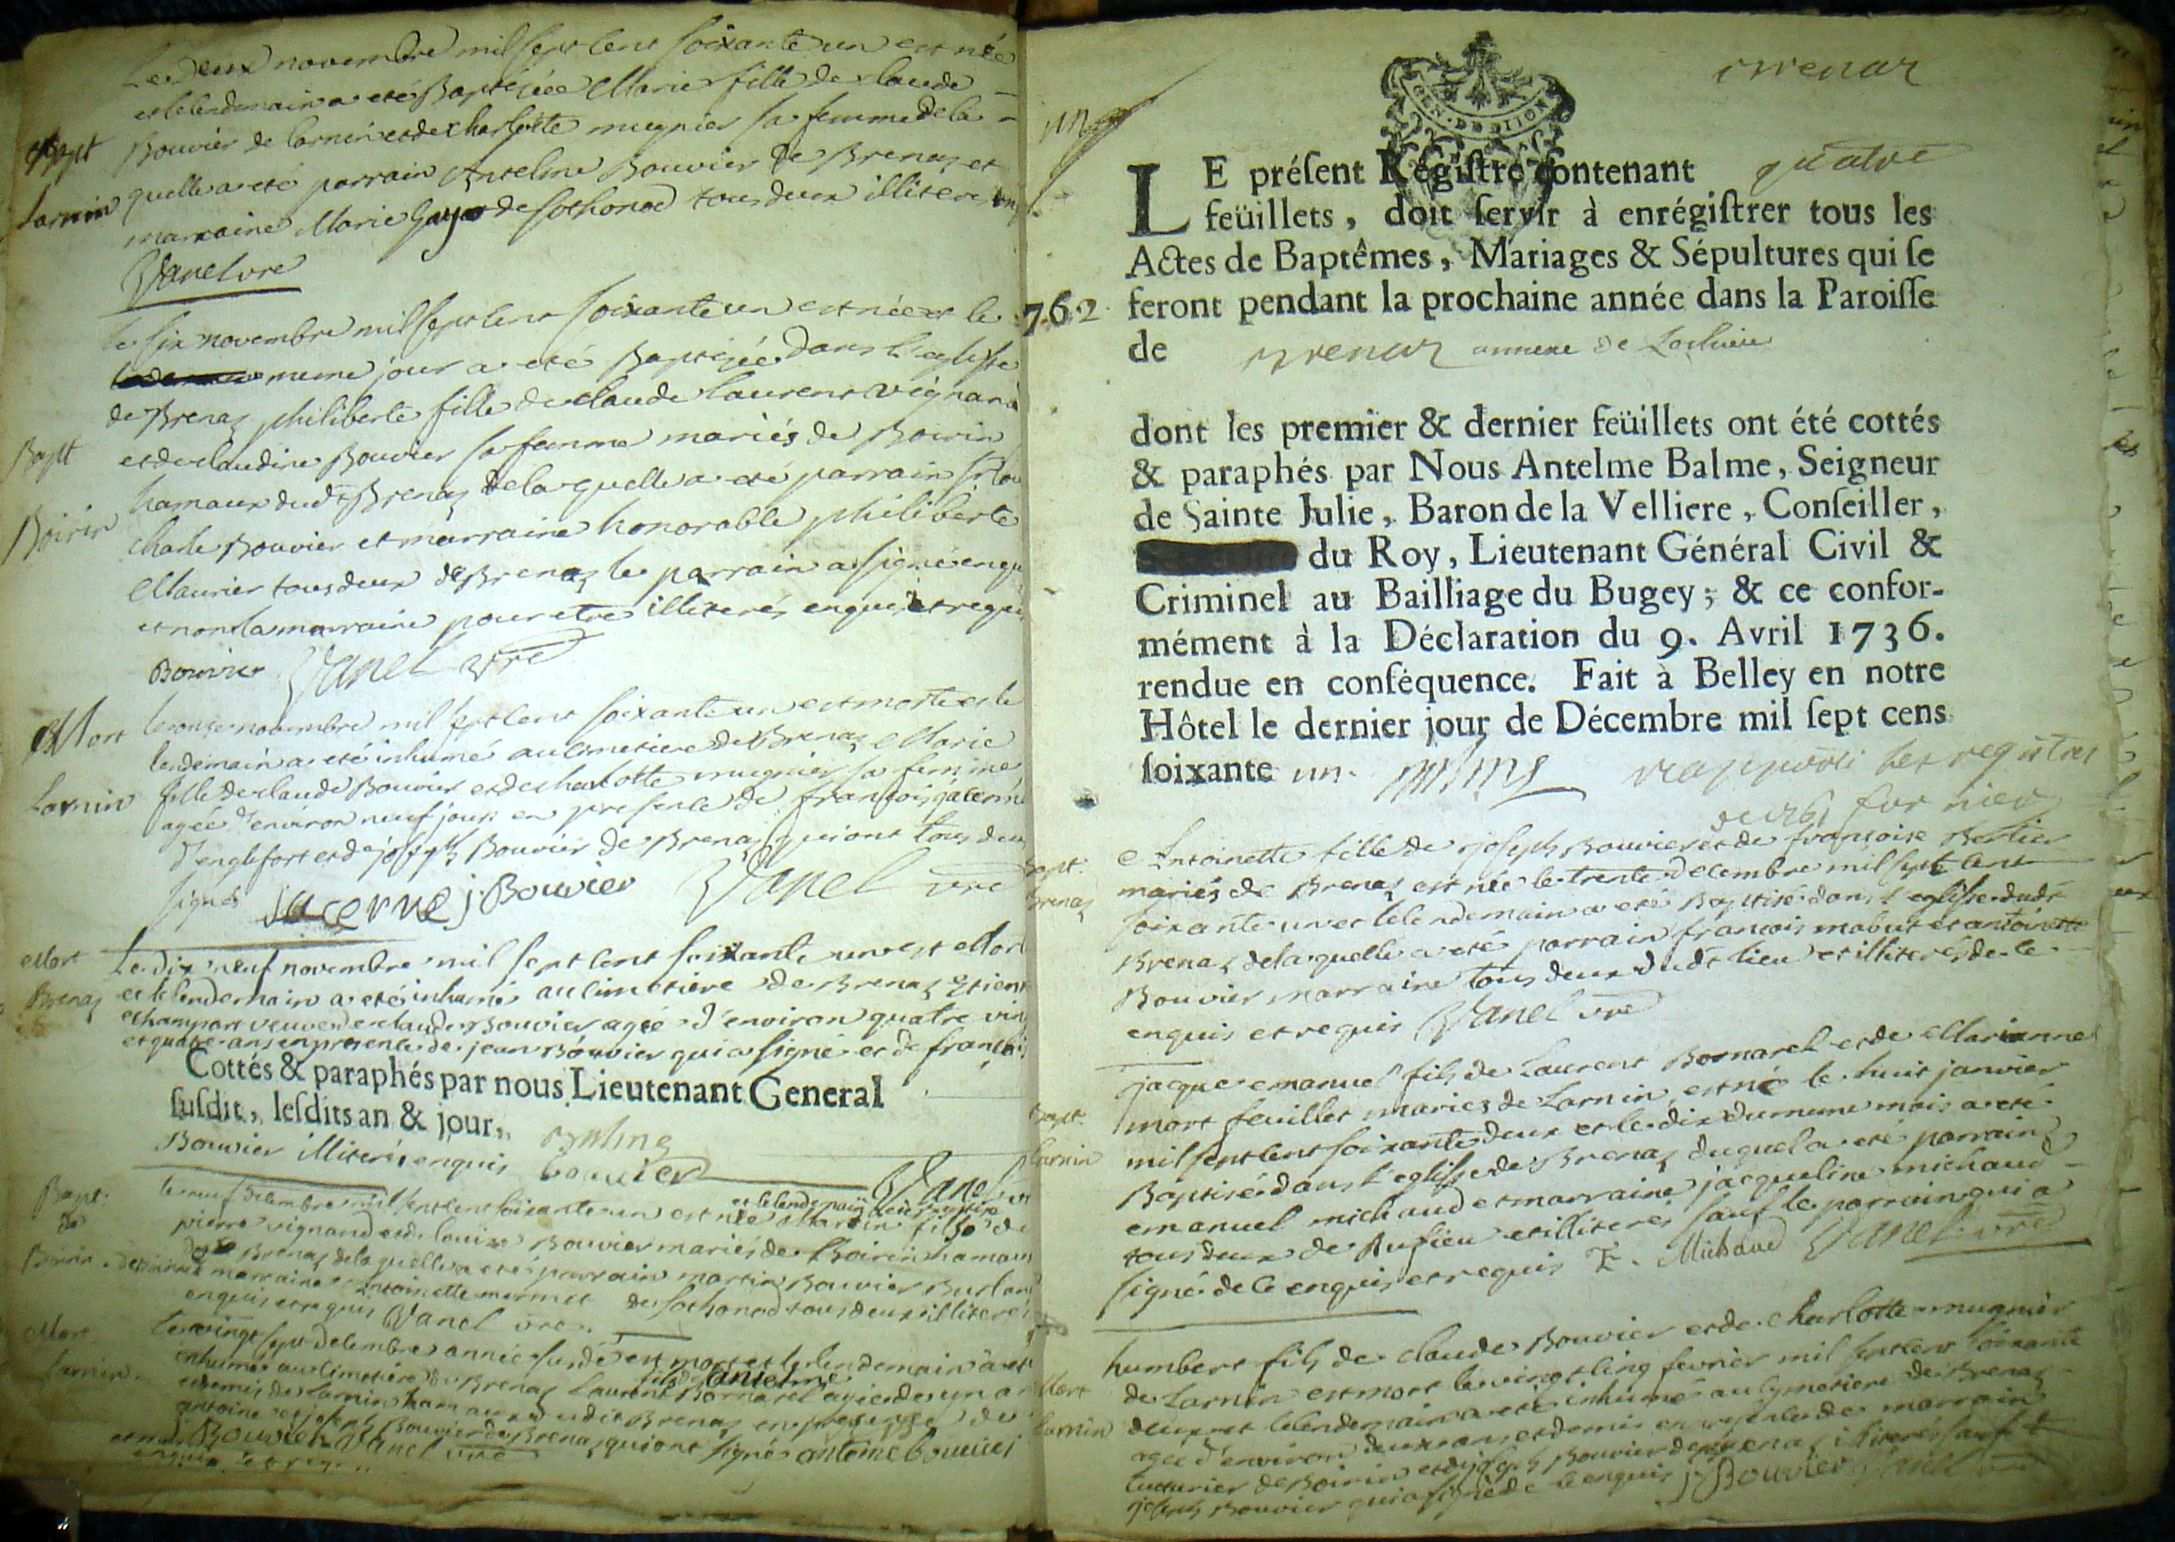 Le deux novembre mil sept cent soixante un est née
et le lendemain a eté Baptisée Marie fille de claude
Bapt Bouvier de Lornin et de charlotte mugnier sa femme de la
Lornin quelle a eté parrain Antelme Bouvier de Brenaz et
marraine Marie Gayo de sothonod tous deux illiteré
Vanel vre
le six novembre mil sept cent soixante un est née et le
meme jour a eté Baptisée dans l'eglise
de Brenaz philiberte fille de claude Laurent vignand
Bapt et de claudine Bouvier sa femme mariés de Boirin
hamaux dudt Brenaz de la quelle a eté parrain
Boirin charle Bouvier et marraine honorable philiberte
Maurier tous deux de Brenaz le parrain a signé
et non la marraine pour etre illiteré enquis et requis
Bouvier Vanel vre
Mort le onze novembre mil sept cent soixante un est morte et le
lendemain a eté inhumé au Cimetiere de Brenaz Marie
Lornin fille de claude Bouvier et de charlotte mugnier sa femme
agée d'environ neuf jours en presence de françois
d'englefort et de joseph Bouvier de Brenaz qui ont tous deux
signés j. Bouvier Vanel vre
Mort Le dix neuf novembre mil sept cent soixante un est Mort
Brenaz et le lendemain a eté inhumé au cimetiere de Brenaz
veuve de claude Bouvier agée d'environ quatre vin
et quatre ans en presence de jean Bouvier qui a signé et de françois
Cottés & paraphés par nous Lieutenant General
ſuſdit, leſdits an & jour,
Bouvier illiteré enquis Balme bouvier Vanel
Bapt. le neuf decembre mil sept cent soixante un est née et le lendemain Marie fille de
de pierre vignand et de louise Bouvier mariés de Boirin hamaux
Boirin Brenaz de la quelle a eté parrain martin Bouvier
marraine Antoinette de sothonod tous deux illiteré
enquis et requis Vanel vre
Mort Le vingt sept decembre année susd. est mort et le lendemain a eté
Lornin inhumé au cimetiere de Brenaz Laurent fils d'antelme Bornarel agé d'un an
et demi de Lornin hamaux dudit Brenaz en presence de
antoine et joseph Bouvier de Brenaz qui ont signé antoine bouvier
j. Bouvier Vanel vre
Brenaz
LE préſent Régiſtre contenant quatre
feüillets, doit ſervir à enrégiſtrer tous les
Actes de Baptêmes, Mariages & Sépultures qui ſe
762 feront pendant la prochaine année dans la Paroiſſe
de Brenaz annexe de Lochieu
dont les premier & dernier feüillets ont été cottés
& paraphés par Nous Antelme Balme, Seigneur
de Sainte Julie, Baron de la Velliere, Conſeiller,
du Roy, Lieutenant Général Civil &
Criminel au Bailliage du Bugey; & ce confor-
mément à la Déclaration du 9. Avril 1736.
rendue en conſéquence. Fait à Belley en notre
Hôtel le dernier jour de Décembre mil ſept cens
ſoixante un. Balme
Bapt. Antoinette fille de joseph Bouvier et de françoise Bertier
Brenaz mariés de Brenaz est née le trente decembre mil sept cent
soixante un et le lendemain a eté Baptisé dans l'eglise dudt
Brenaz de la quelle a eté parrain françois mabut et antoinette
Bouvier marraine tous deux dudt lieu et illiterés de ce
enquis et requis Vanel vre
jacque emanuel fils de Laurent Bornarel et de Marianne
Bapt. mort feuillet mariés de Lornin, est né le huit janvier
Lornin mil sept cent soixante deux et le dix du meme mois a eté
Baptisé dans l'eglise de Brenaz duquel a eté parrain
emanuel michaud et marraine jacqueline michaud
tous deux de Rufieu et illiterés sauf le parrain qui a
signé de ce enquis et requis E. Michaud Vanel vre
humbert fils de claude Bouvier et de charlotte mugnier
Mort de Lornin est mort le vingt cinq fevrier mil sept cent soixante
Lornin deux et le lendemain a eté inhumé au cymetiere de Brenaz
agé d'environ deux ans et demi en presence de marrain
de Boirin et de joseph Bouvier de Brenaz illiterés sauf
joseph Bouvier qui a signé de ce enquis j. Bouvier Vanel vre